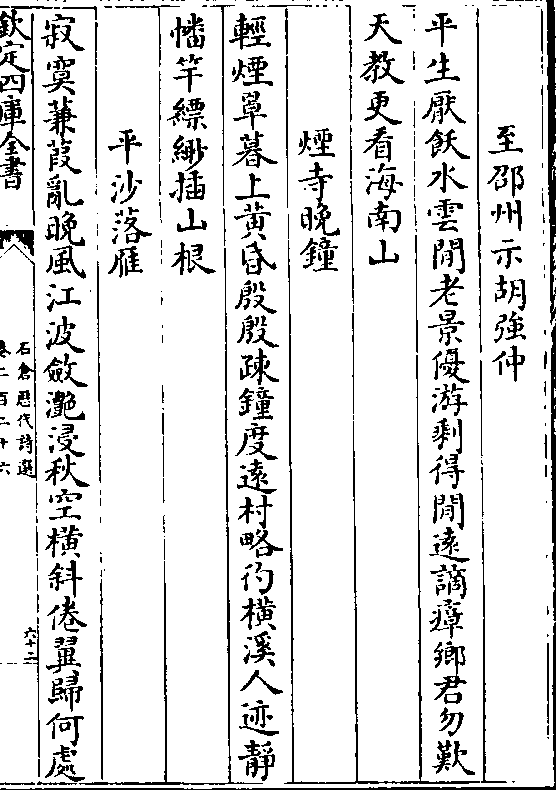 至邵州示胡強仲
平生厭飫水雲閒老景優游剩得閒遠謫瘴鄉君勿歎
天教更看海南山
煙寺晚鐘
輕煙罩暮上黄昏殷殷疎鐘度遠村略彴橫溪人迹靜
幡竿縹緲插山根
平沙落雁
寂寞蒹葭亂晚風江波斂灔浸秋空橫斜倦翼歸何處
欽定四庫全書
石倉歷代詩選
卷二百二十六
六十二